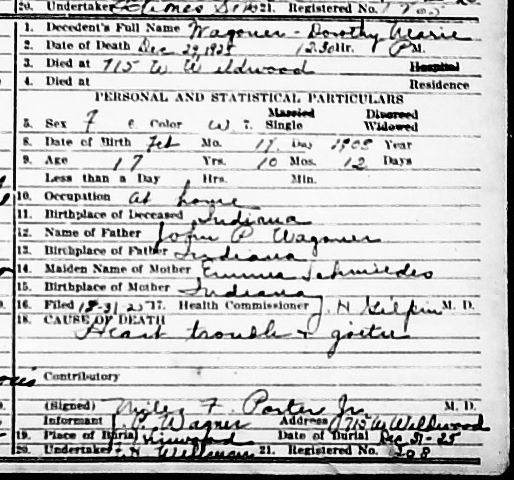 20. Undertaker 21. Registered No.
1. Decedent's Full Name Wagoner - Dorothy Marie
2. Date of Death Dec 29, 1925 12:30 Hr. P M.
3. Died at 715 W Wildwood Hospital
4. Died at Residence
PERSONAL AND STATISTICAL PARTICULARS
Married Divorced
5. Sex F 6. Color W 7. Single Widowed
8. Date of Birth Feb Mo. 17 Day 1908 Year
9. Age 17 Yrs. 10 Mos. 12 Days
Less than a Day Hrs. Min.
10. Occupation at home
11. Birthplace of Deceased Indiana
12. Name of Father John P. Wagoner
13. Birthplace of Father Indiana
14. Maiden Name of Mother Emma
15. Birthplace of Mother Indiana
16. Filed 12-31-25 17. Health Commissioner J. H. Gilpin M. D.
18. CAUSE OF DEATH
Heart trouble & goiter
Contributory
(Signed) Miles F. Porter Jr. M. D.
Informant J. P. Wagner Address 715 W Wildwood
19. Place of Burial Date of Burial Dec 31-25
20. Undertaker 21. Registered No.